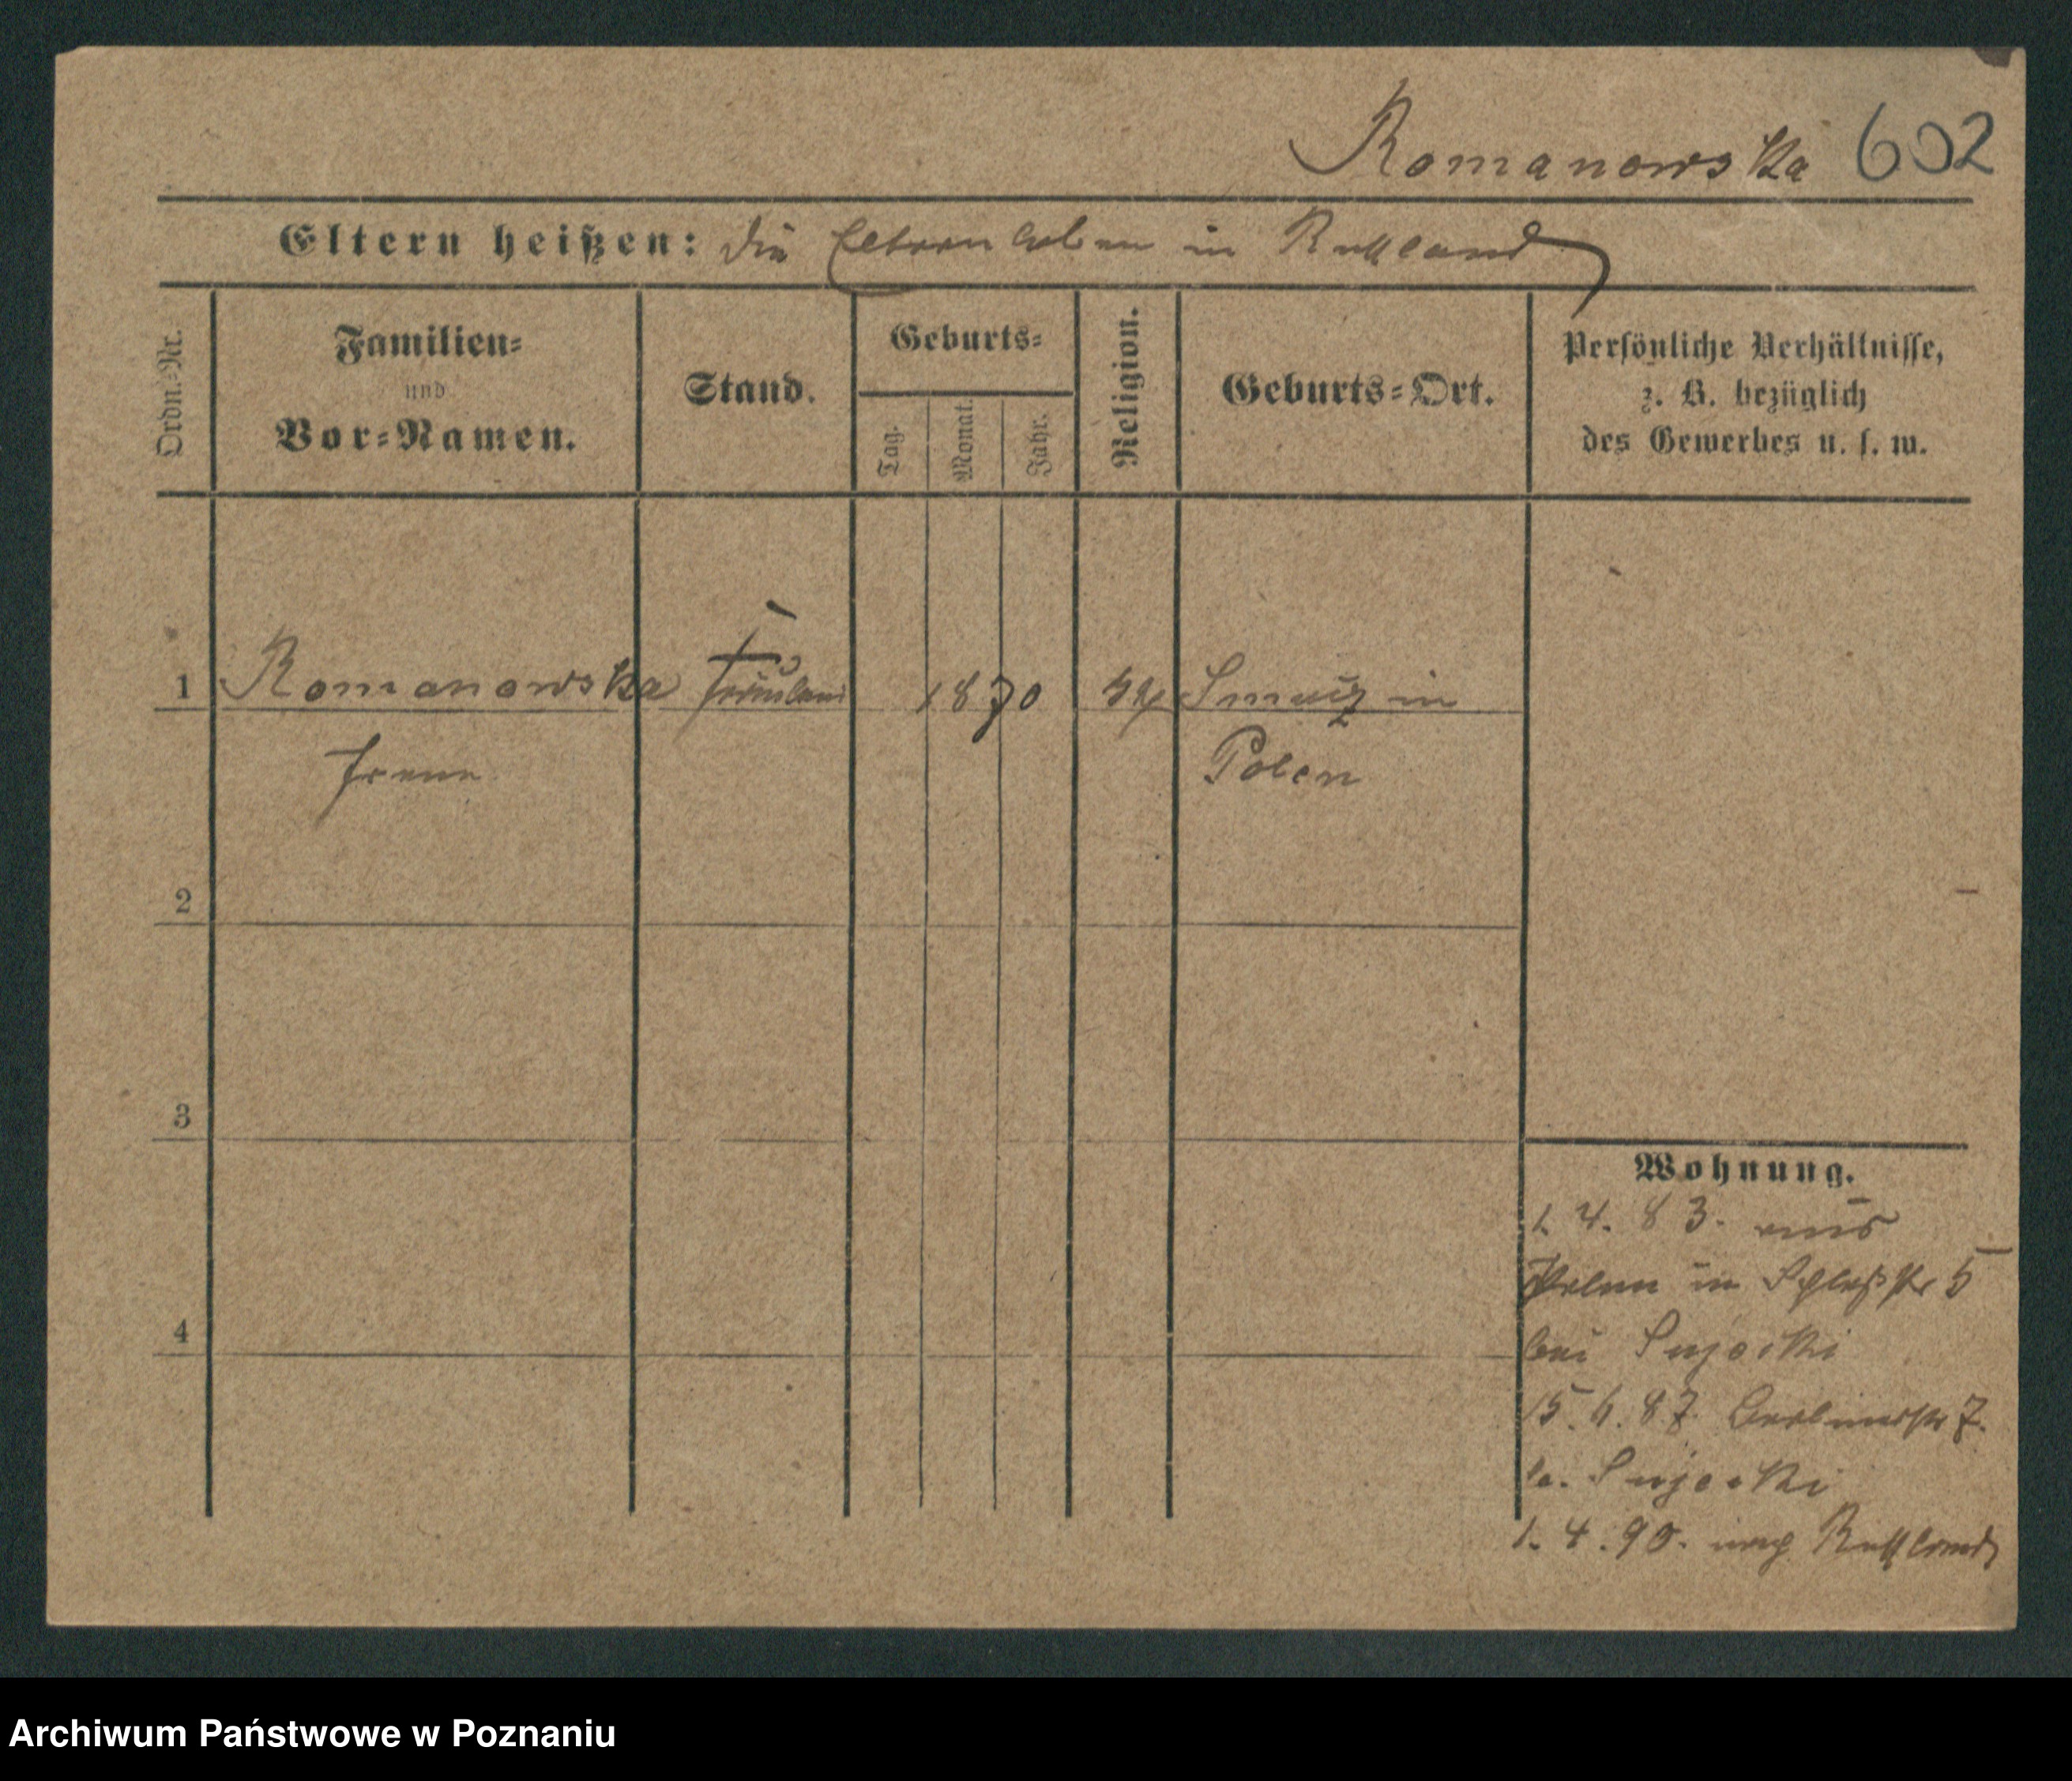 Romanowska 602
Eltern heißen: die Eltern leben in Rußland
Ordn.-Nr.
Familien-
und
Vor-Namen.
Stand.
Geburts-
Tag.
Monat.
Jahr.
Religion.
Geburts-Ort.
Persönliche Verhältnisse,
z. B. bezüglich
des Gewerbes u. s. w.
1 Romanowska Fräulein 1870 in
Irene Polen
2
3
4
Wohnung.
1. 4. 83. aus
Polen in Schloßstr 5
bei
15. 6. 87. Berlinerstr 7.
b.
1. 4. 90. nach Rußland
Archiwum Państwowe w Poznaniu